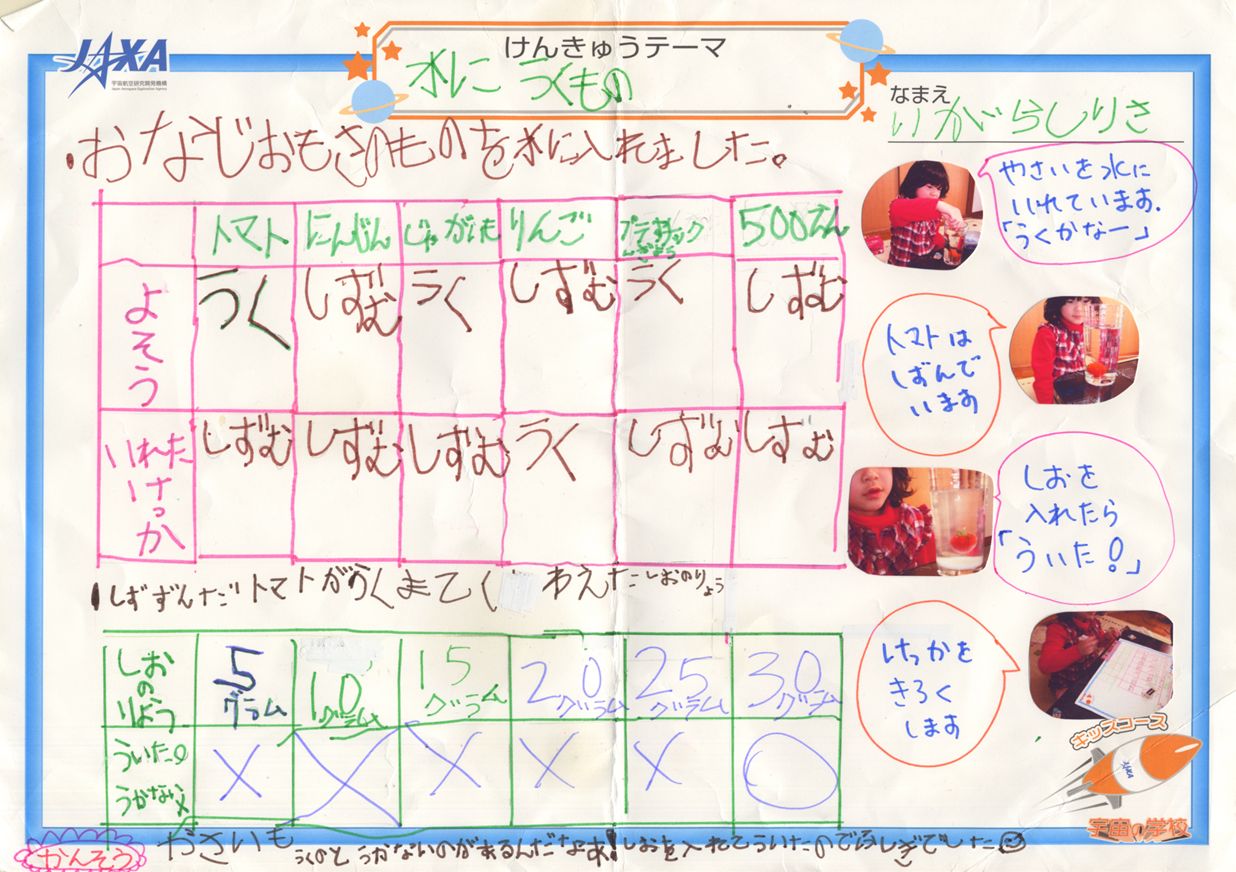 JAXA
宇宙航空研究開発機構
Japan Aerospace Exploration Agency
けんきゅうテーマ
水に うくもの
なまえ
いがらしりさ
・おなじおもさのものを水に入れました。
トマト にんじん じゃがいも りんご プラスチック 500えん
よそう うく しずむ うく しずむ うく しずむ
いれたけっか しずむ しずむ しずむ うく しずむ しずむ
しずずんだトマトがうくまてく わえたしおのりょう
しおのりょう 5グラム 10グラム 15グラム 20グラム 25グラム 30グラム
ういた○ うかない× × × × × × ○
やさいを水に
いれています.
「うくかなー」
トマトは
しずんで
います
しおを
入れたら
「ういた!」
けっかを
きろく
します
キッズコース
JAXA
宇宙の学校
かんそう
やさいも うくのと うかないのがあるんだなあ!しおを入れてういたのでふしぎでした